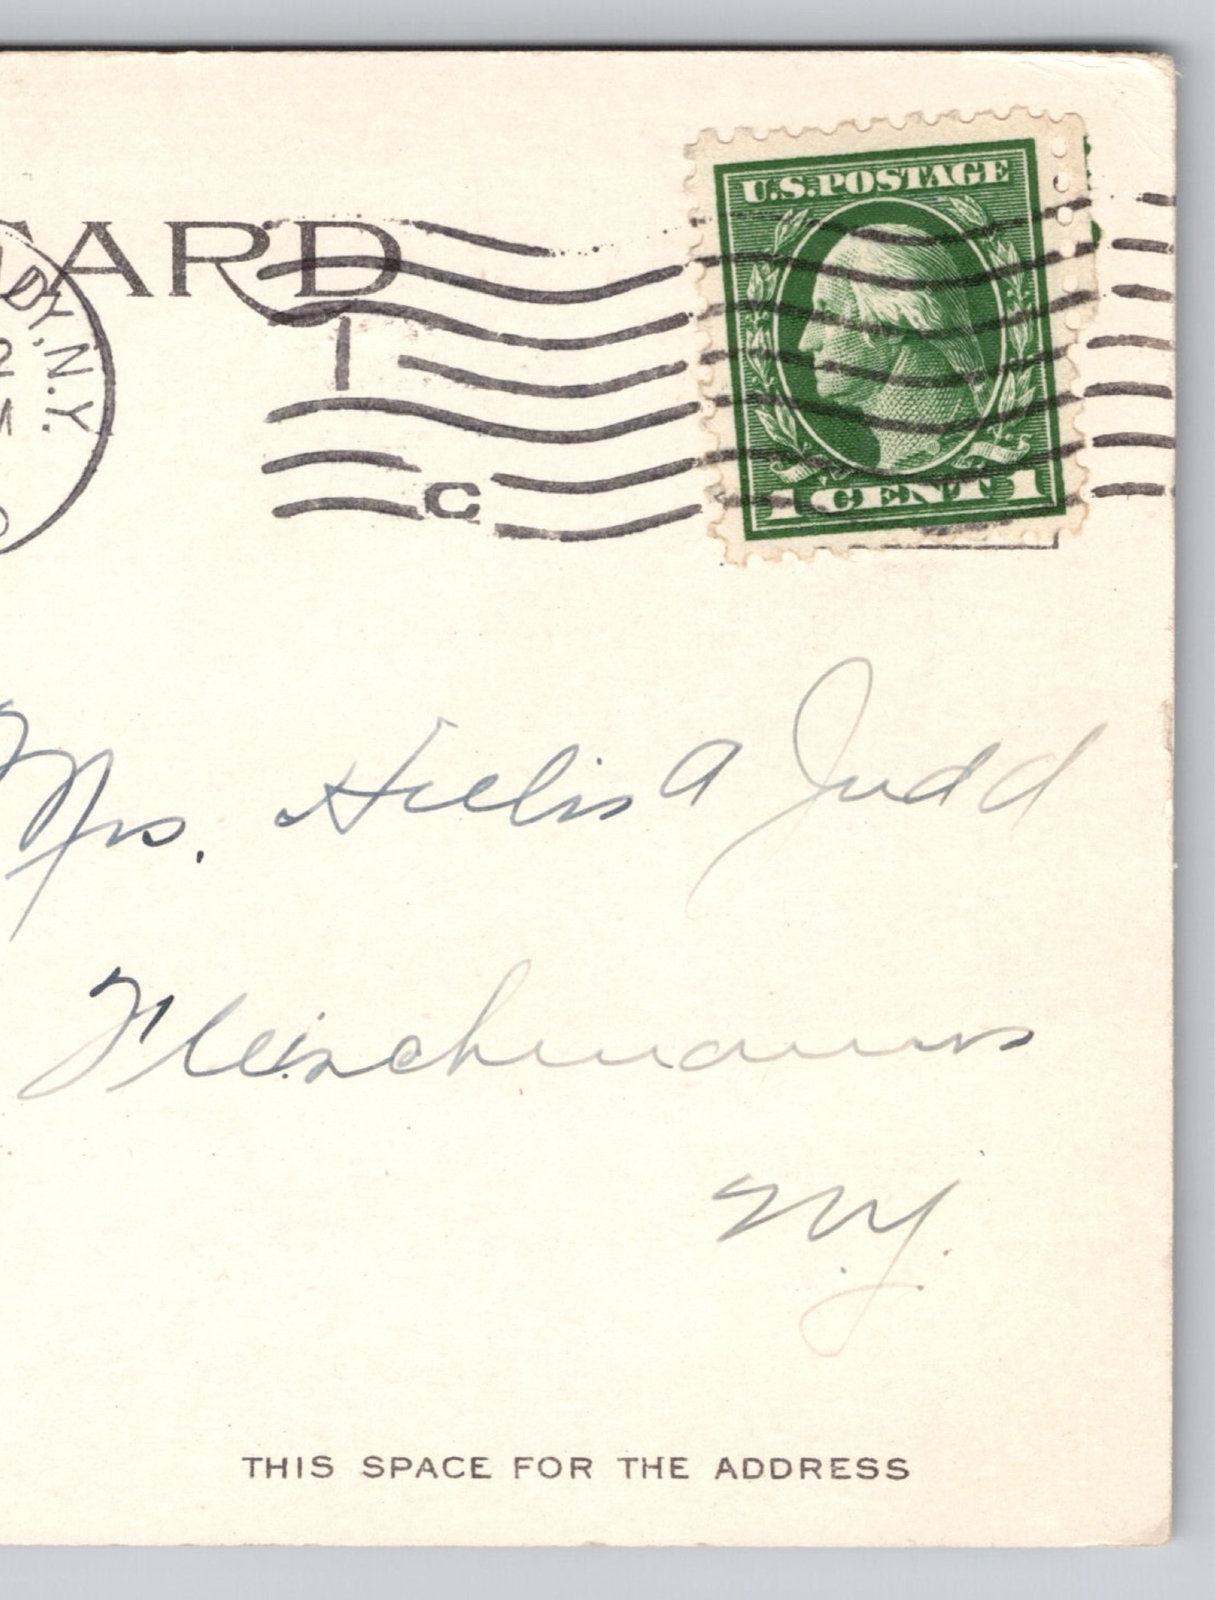 CARD
ADY, N.Y.
2
1
C
U.S. POSTAGE
1 CENT 1
Mrs. Hillis A Judd
Fleischmanns
N.Y.
THIS SPACE FOR THE ADDRESS